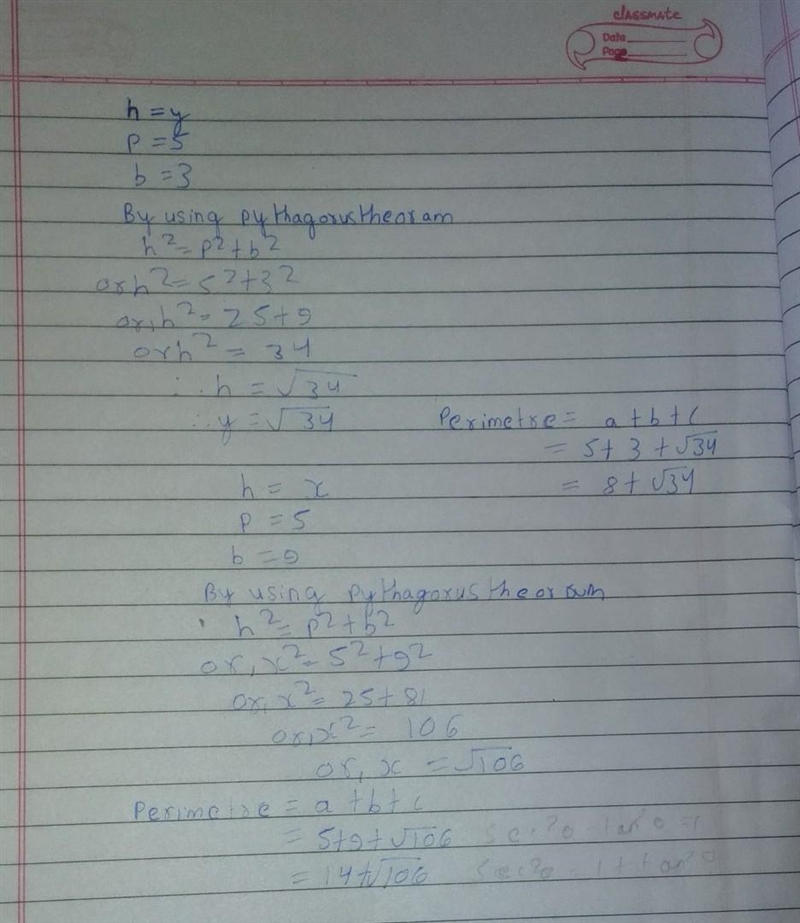 classmate
Date
Page
h = y
p = 5
b = 3
By using pythagorus theoram
h² = p² + b²
or h² = 5² + 3²
or, h² = 25 + 9
or h² = 34
∴ h = √34
∴ y = √34
Perimetre = a + b + c
= 5 + 3 + √34
= 8 + √34
h = x
p = 5
b = 9
By using pythagorus theorum
h² = p² + b²
or, x² = 5² + 9²
or, x² = 25 + 81
or, x² = 106
or, x = √106
Perimetre = a + b + c
= 5 + 9 + √106
= 14 + √106